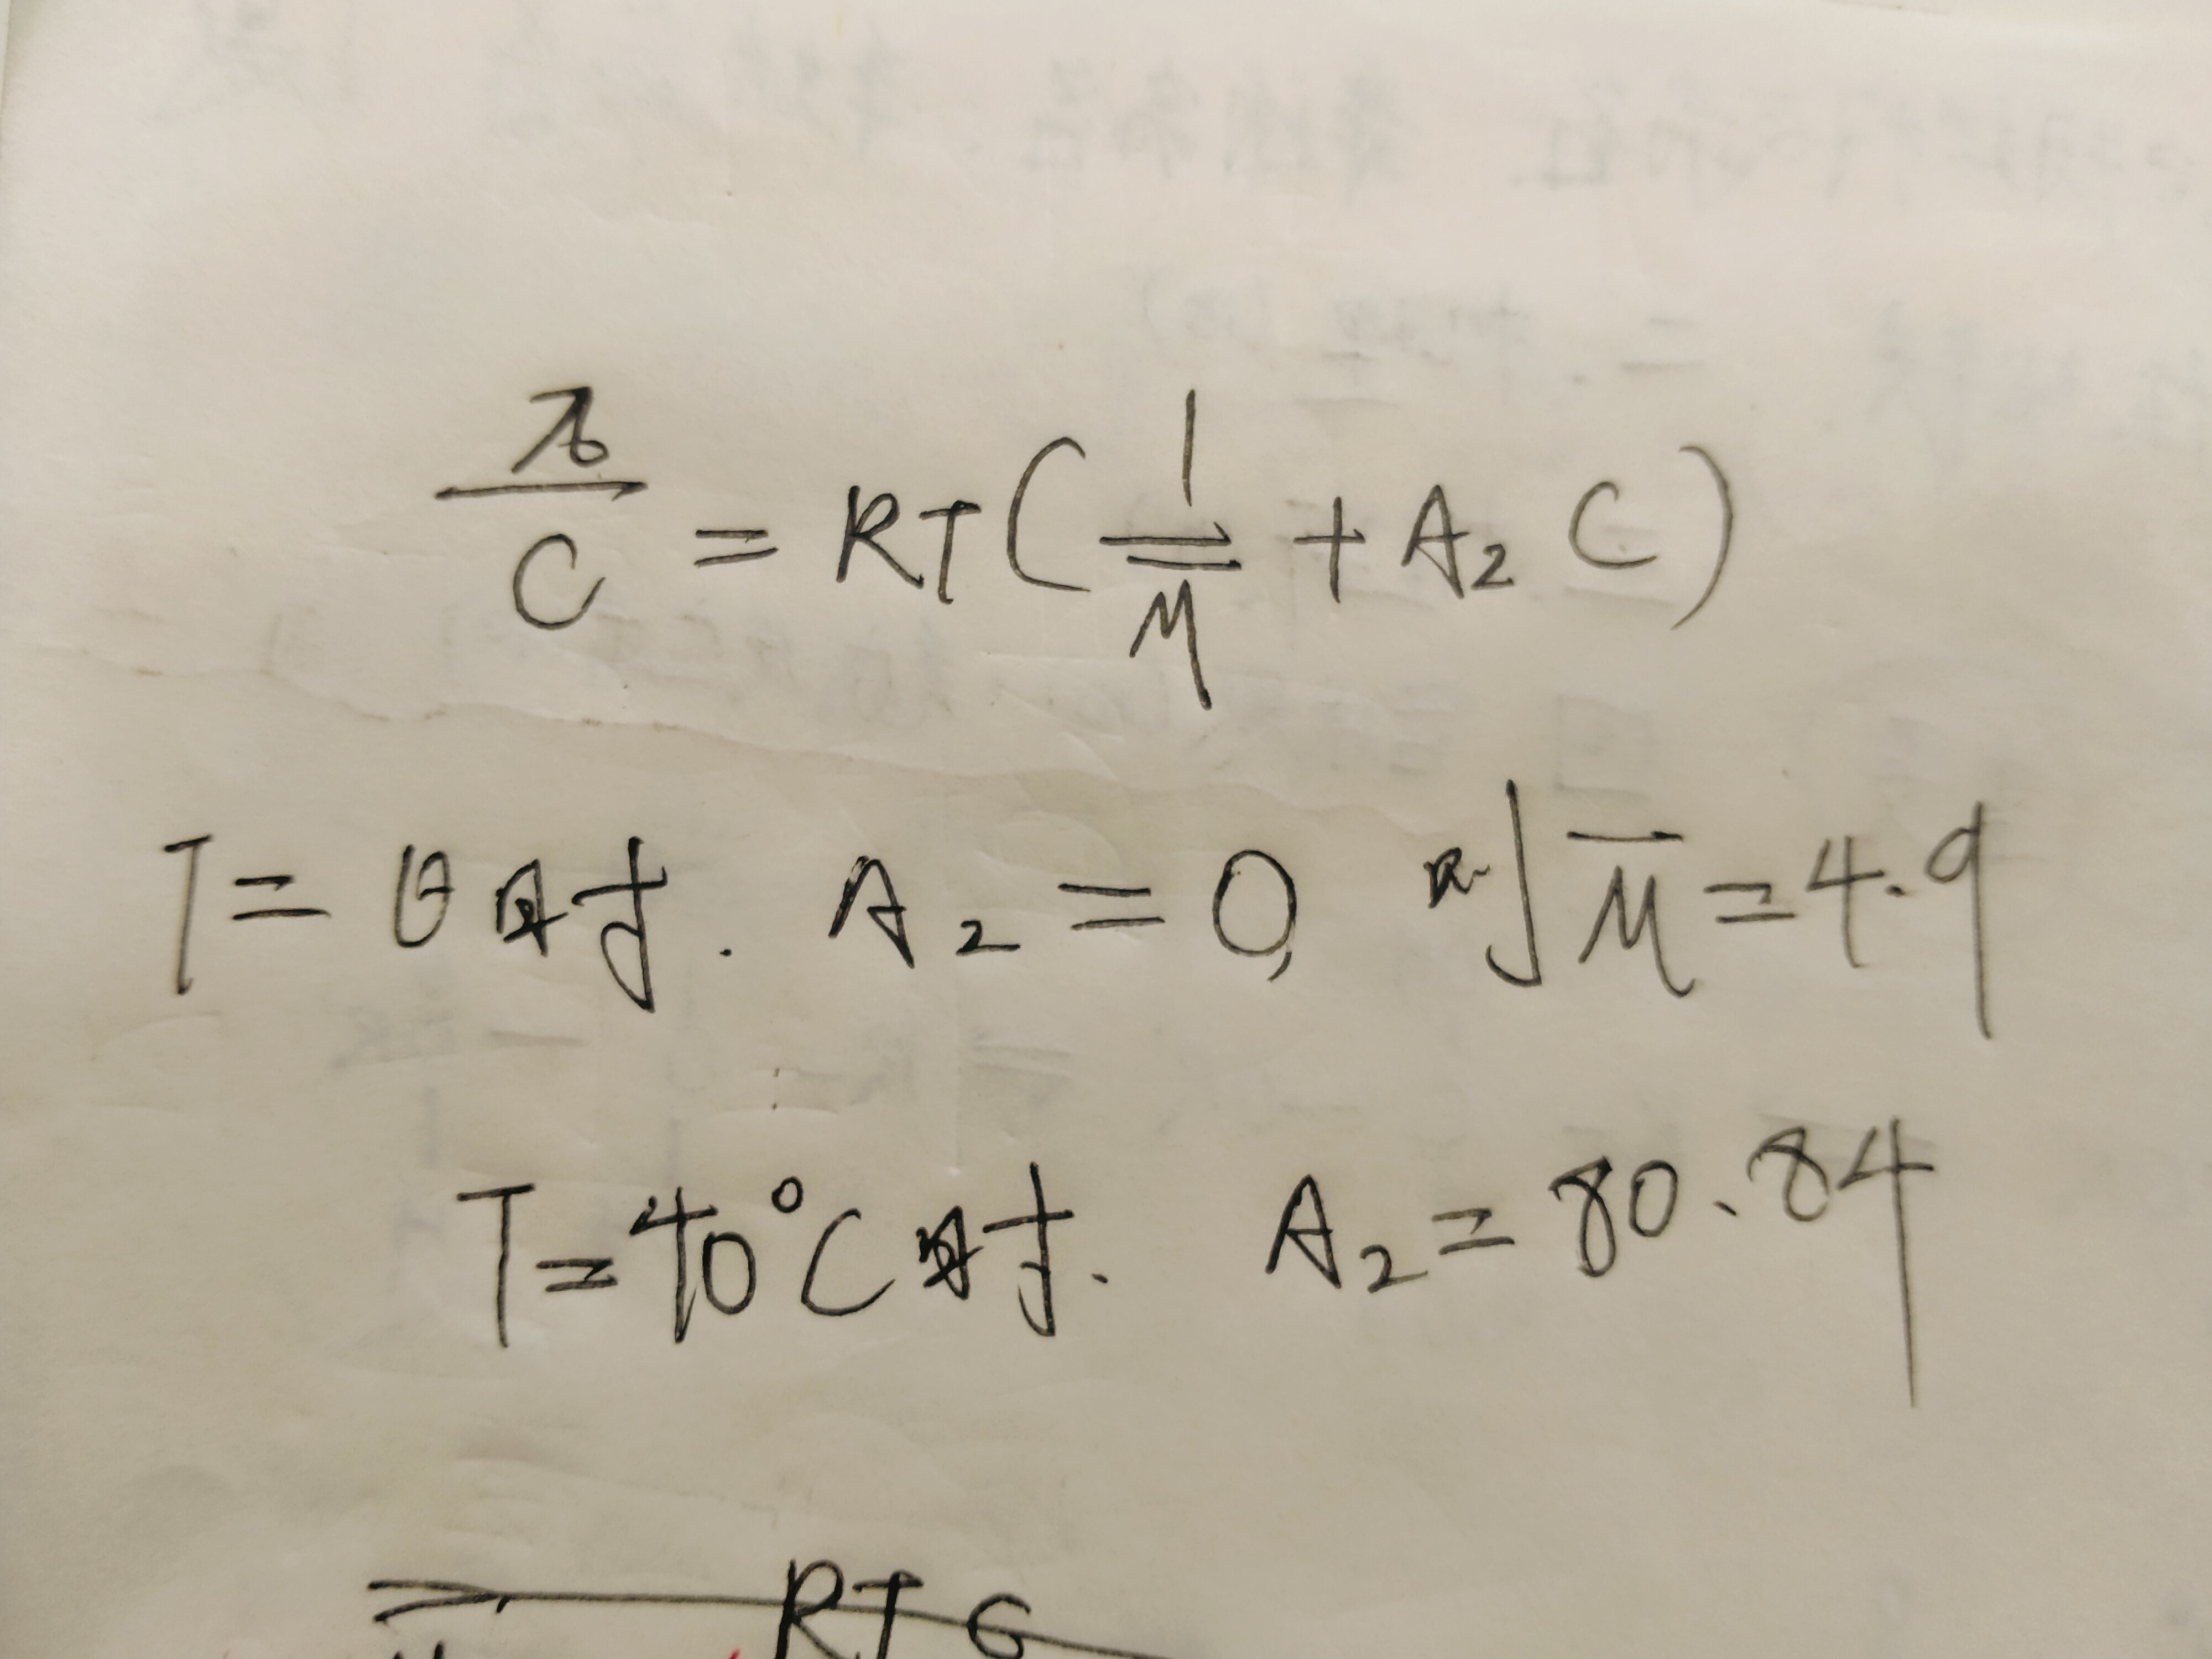 π/C = RT(1/M̄ + A₂C)
T = θ时. A₂ = 0, 则 M̄ = 4.9
T = 40°C时. A₂ = 80.84
RT